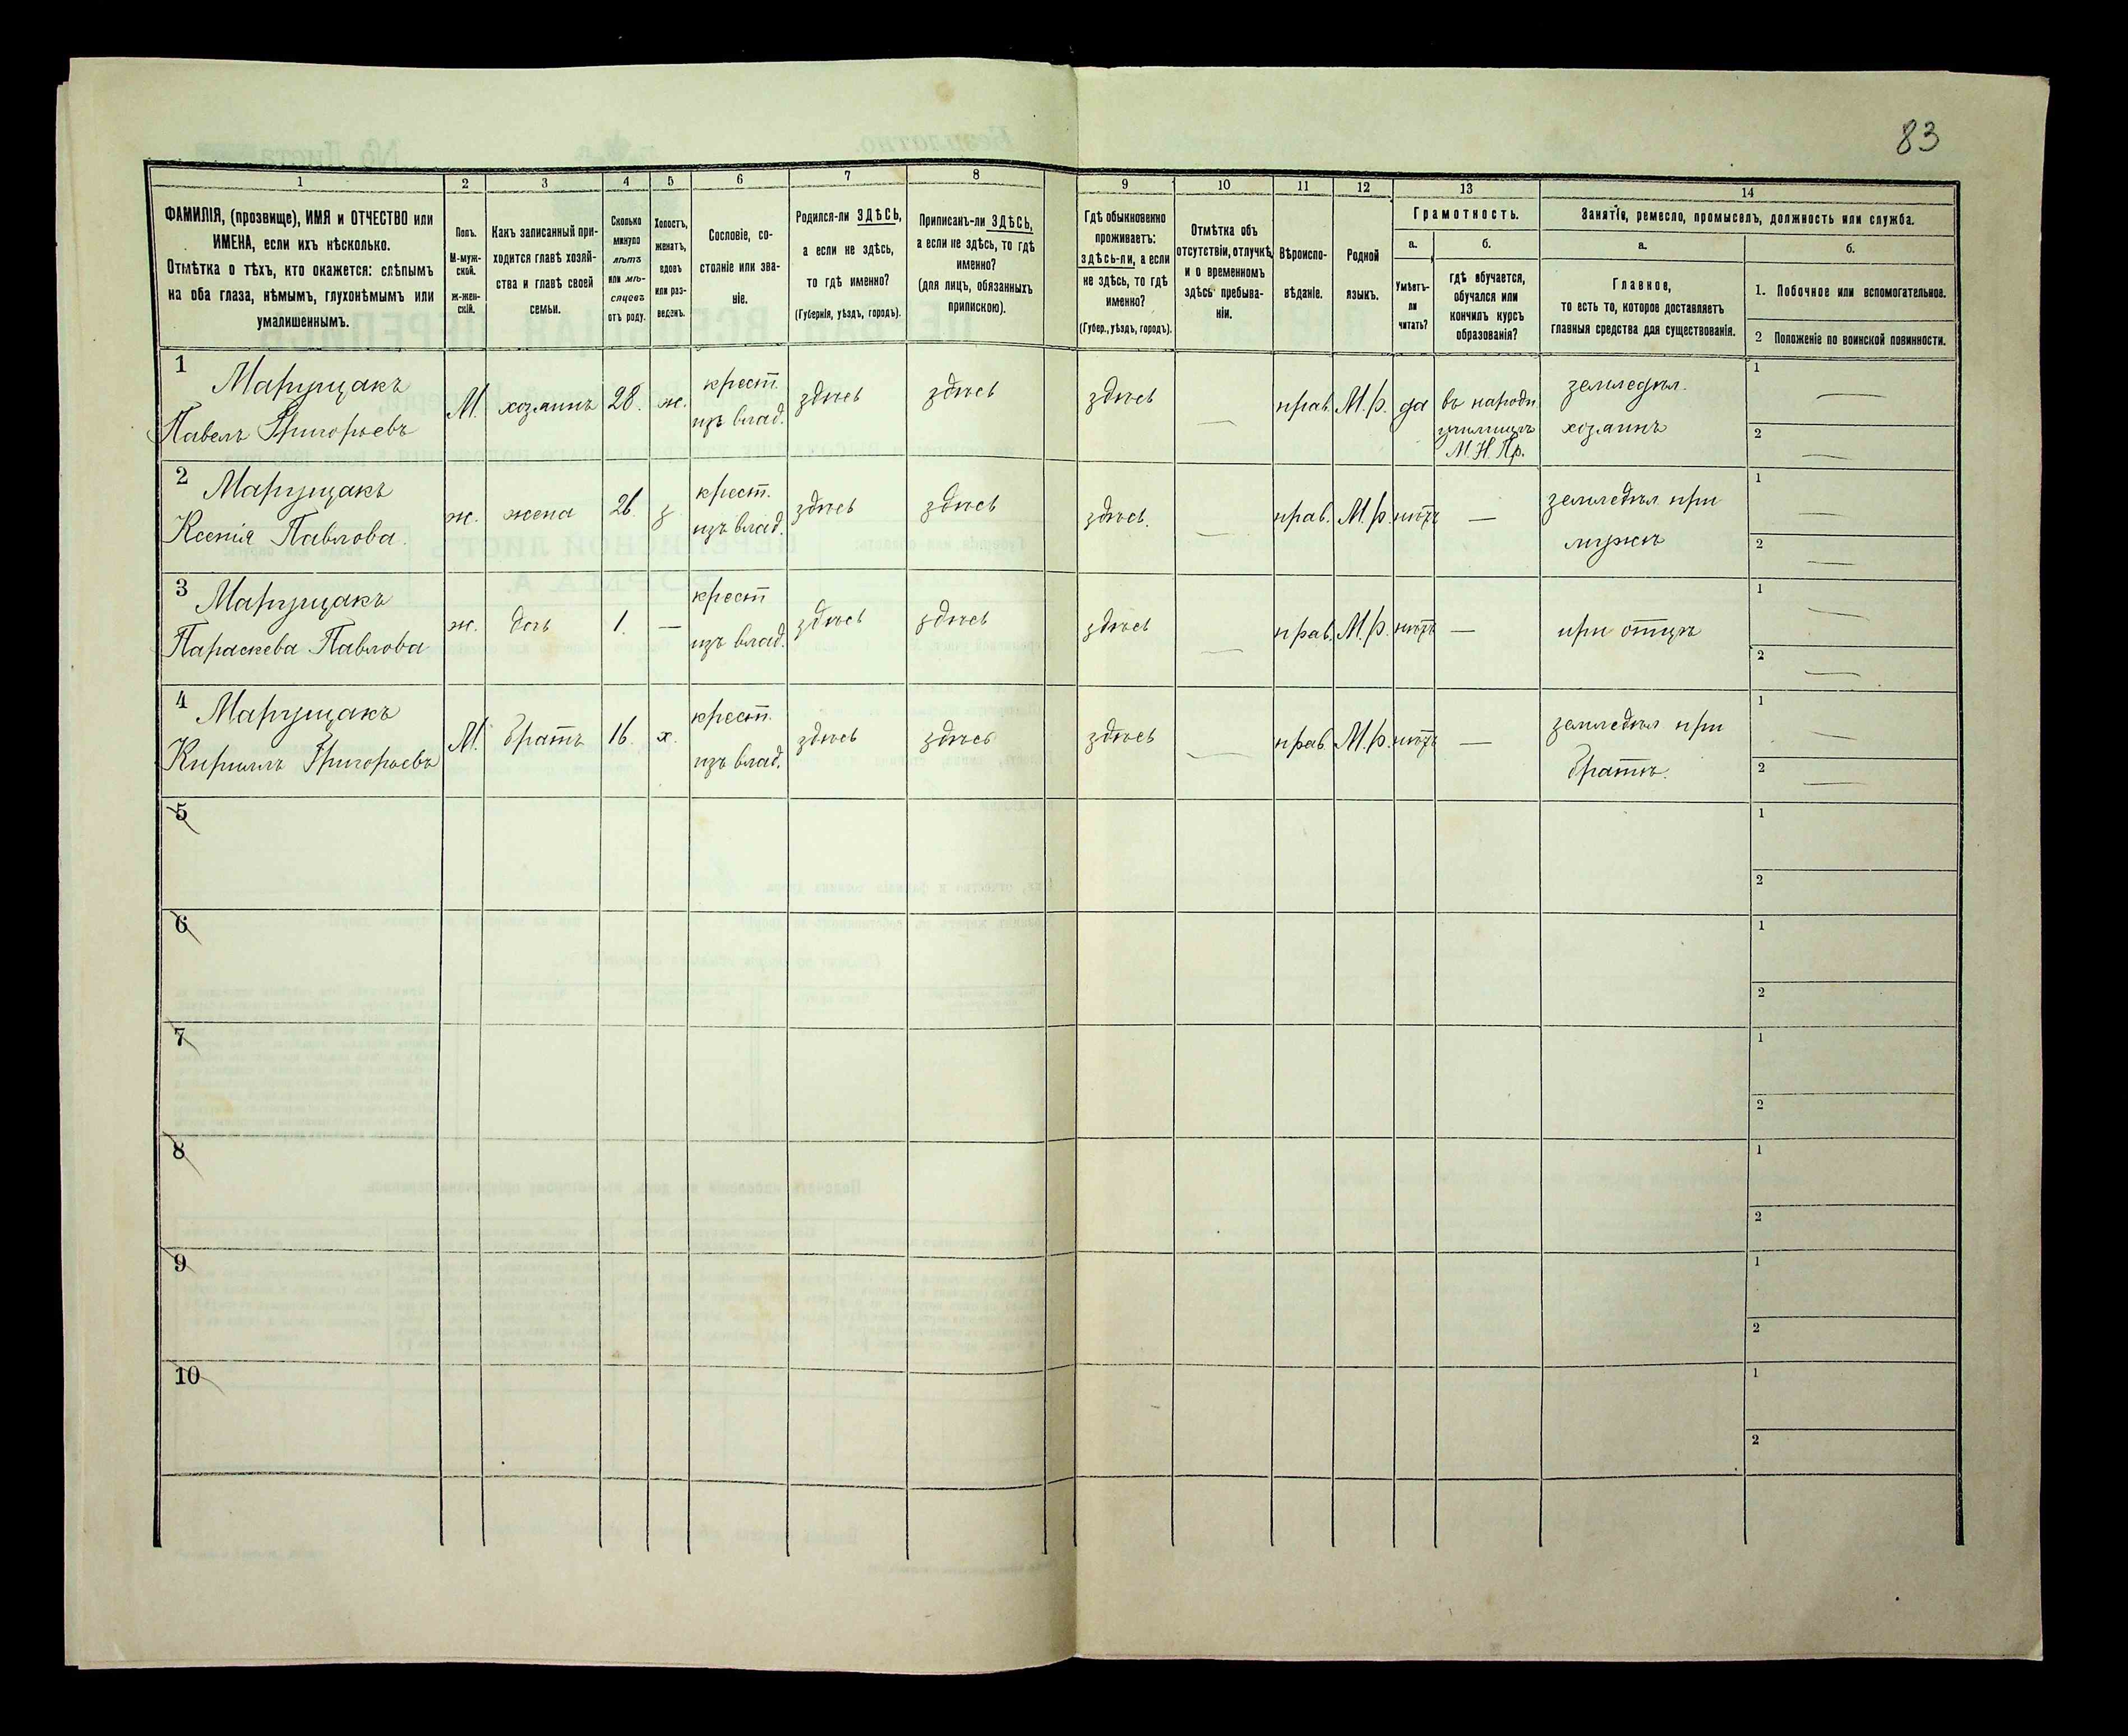 83
1 2 3 4 5 6 7 8 9 10 11 12 13 14
ФАМИЛІЯ, (прозвище), ИМЯ и ОТЧЕСТВО или
ИМЕНА, если ихъ нѣсколько.
Отмѣтка о тѣхъ, кто окажется: слѣпымъ
на оба глаза, нѣмымъ, глухонѣмымъ или
умалишеннымъ.
Полъ.
М-муж-
ской.
ж-жен-
скій.
Какъ записанный при-
ходится главѣ хозяй-
ства и главѣ своей
семьи.
Сколько
минуло
лѣтъ
или мѣ-
сяцевъ
отъ роду.
Холостъ,
женатъ,
вдовъ
или раз-
веденъ.
Сословіе, со-
стояніе или зва-
ніе.
Родился-ли ЗДѢСЬ,
а если не здѣсь,
то гдѣ именно?
(Губернія, уѣздъ, городъ).
Приписанъ-ли ЗДѢСЬ,
а если не здѣсь, то гдѣ
именно?
(для лицъ, обязанныхъ
припискою).
Гдѣ обыкновенно
проживаетъ:
здѣсь-ли, а если
не здѣсь, то гдѣ
именно?
(Губер., уѣздъ, городъ).
Отмѣтка объ
отсутствіи, отлучкѣ
и о временномъ
здѣсь пребыва-
ніи.
Вѣроиспо-
вѣданіе.
Родной
языкъ.
Грамотность.
а.
Умѣетъ-
ли
читать?
б.
гдѣ обучается,
обучался или
кончилъ курсъ
образованія?
Занятіе, ремесло, промыселъ, должность или служба.
а.
Главное,
то есть то, которое доставляетъ
главныя средства для существованія.
б.
1. Побочное или вспомогательное.
2 Положеніе по воинской повинности.
1 Марущакъ
Павелъ Григорьевъ
М. хозяинъ 28. ж.
крест.
изъ влад.
здѣсь здѣсь здѣсь — прав. М.р. да
въ народн
училищѣ
М.Н.Пр.
земледѣл.
хозяинъ
1 —
2 —
2 Марущакъ
Ксенія Павлова.
ж. жена 26. з
крест.
изъ влад.
здѣсь здѣсь здѣсь. — прав. М.р. нѣтъ —
земледѣл при
мужѣ
1 —
2 —
3 Марущакъ
Параскева Павлова
ж. дочь 1. —
крест
изъ влад.
здѣсь здѣсь здѣсь — прав. М.р. нѣтъ —
при отцѣ
1 —
2 —
4 Марущакъ
Кириллъ Григорьевъ
М. братъ 16. х.
крест.
изъ влад.
здѣсь здѣсь здѣсь — прав. М.р. нѣтъ —
земледѣл при
братѣ.
1 —
2 —
5
1
2
6
1
2
7
1
2
8
1
2
9
1
2
10
1
2